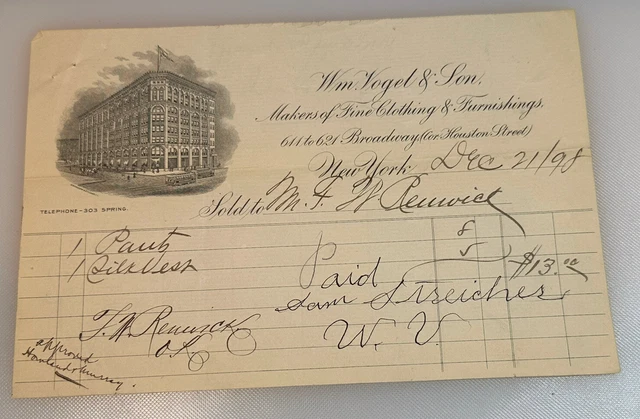 Wm. Vogel & Son,
Makers of Fine Clothing & Furnishings,
611 to 621 Broadway (Cor. Houston Street)
New York Dec 21/98
TELEPHONE-303 SPRING.
Sold to Mr. F. W. Renwick
1 Pants 8
1 Silk Vest 5 $13.00
Paid
Sam Streicher
W. V.
F. W. Renwick
OK
approved